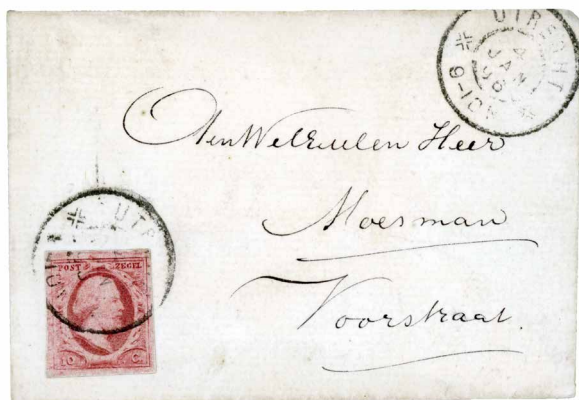 UTRECHT
4
JAN
96
9-10V
Den WelEdelen Heer
Moesman
Voorstraat.
UTR
POST ZEGEL
10 C.